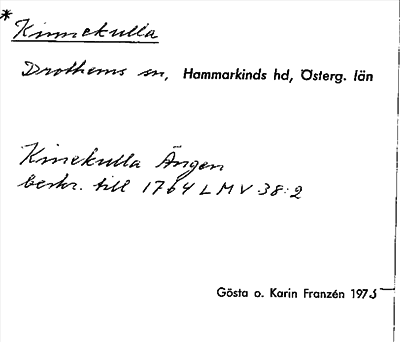 * Kinnekulla
Drothems sn, Hammarkinds hd, Österg. län
Kinekulla Ängen
beskr. till 1764 LMV 38:2
Gösta o. Karin Franzén 1975